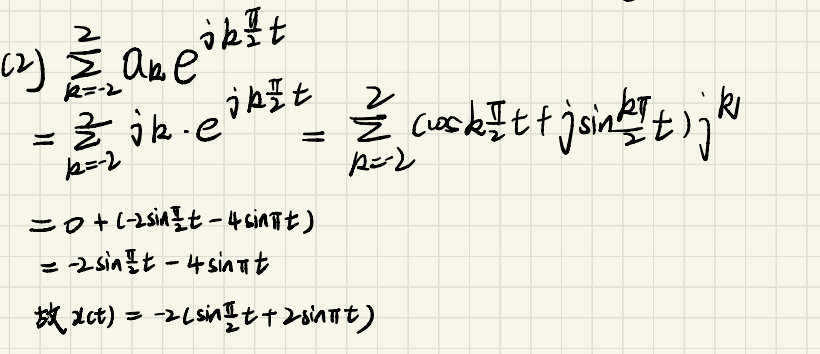 (2) \sum_{k=-2}^{2} a_k e^{jk\frac{\pi}{2}t}
= \sum_{k=-2}^{2} jk \cdot e^{jk\frac{\pi}{2}t} = \sum_{k=-2}^{2} (\cos k\frac{\pi}{2}t + j\sin\frac{k\pi}{2}t) jk
= 0 + (-2\sin\frac{\pi}{2}t - 4\sin\pi t)
= -2\sin\frac{\pi}{2}t - 4\sin\pi t
故 x(t) = -2(\sin\frac{\pi}{2}t + 2\sin\pi t)